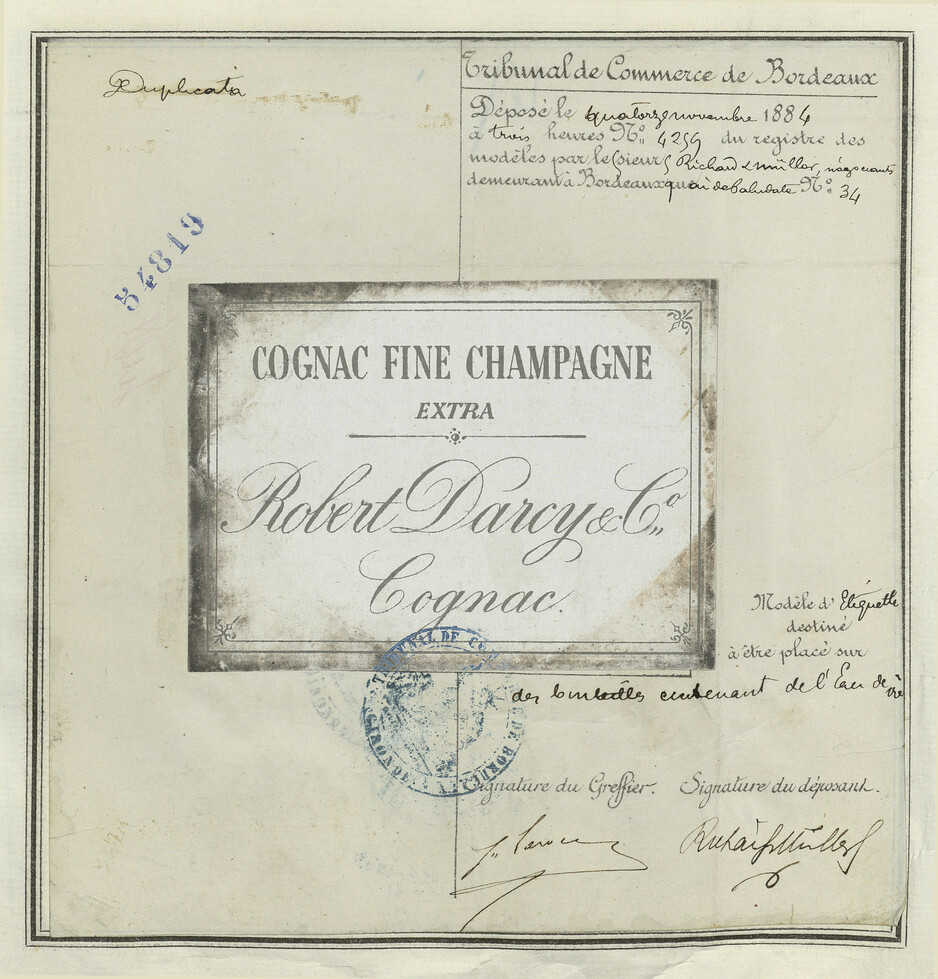 Duplicata
Tribunal de Commerce de Bordeaux
Déposé le quatorze novembre 1884
à trois heures N° 4259 du registre des
modèles par les sieurs Richard & Müller, négociants
demeurant à Bordeaux quai de Bahutte N° 34
54819
COGNAC FINE CHAMPAGNE
EXTRA
Robert Darcy & Co.
Cognac.
Modèle d'Etiquette
destiné
à être placé sur
des bouteilles contenant de l'Eau de vie
TRIBUNAL DE COMMERCE DE BORDEAUX
GIRONDE
Signature du Greffier. Signature du déposant.
Richard & Müller